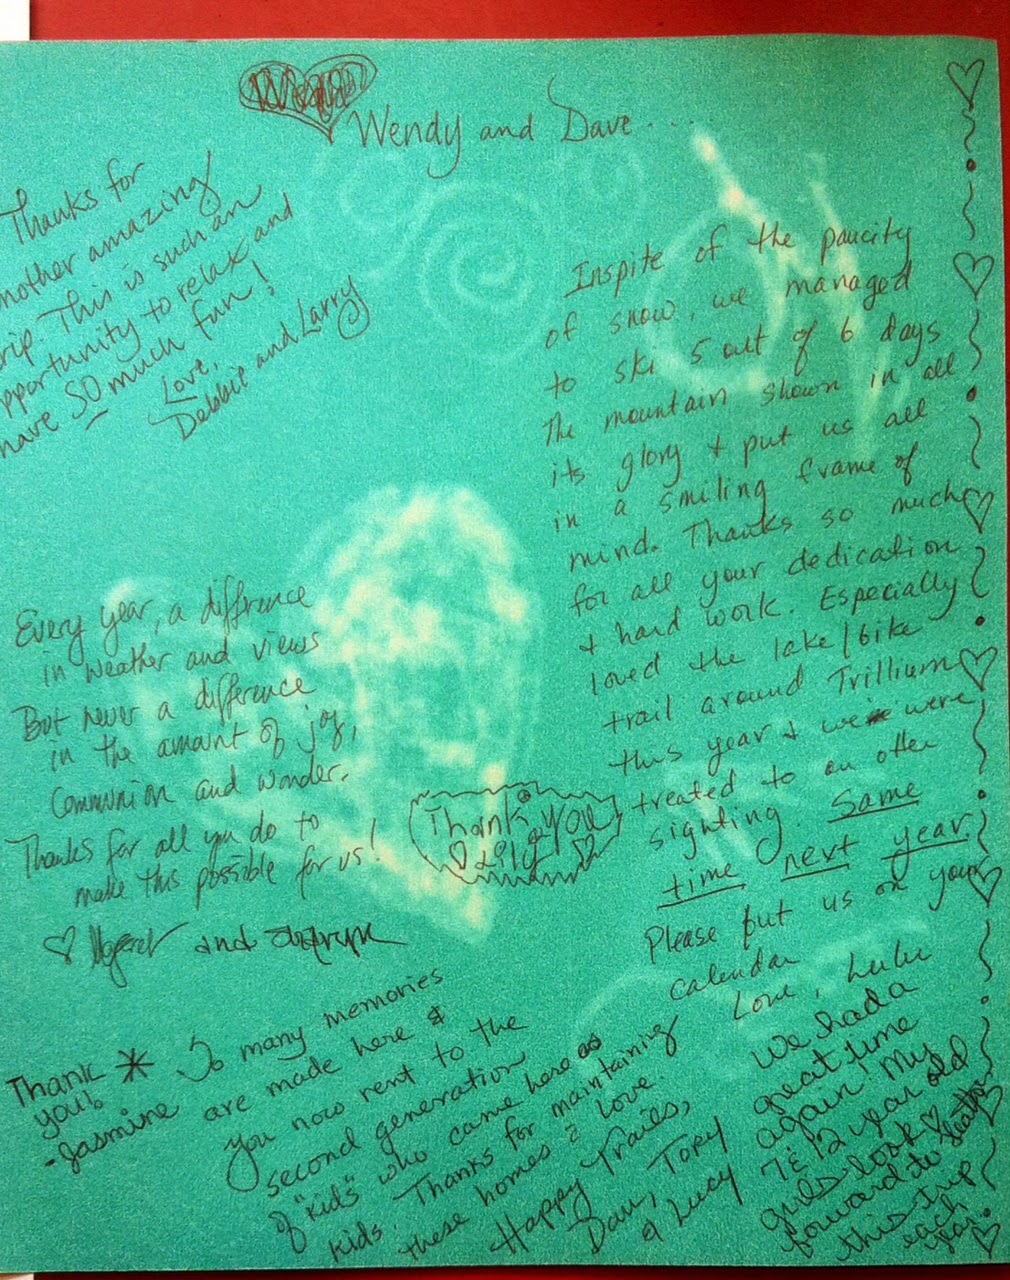 Wendy and Dave...
Thanks for
nother amazing
rip. This is such an
pportunity to relax and
have SO much fun!
Love,
Debbie and Larry
Inspite of the paucity
of snow, we managed
to ski 5 out of 6 days
The mountain shown in all
its glory + put us all
in a smiling frame of
mind. Thanks so much
for all your dedication
+ hard work. Especially
loved the lake/bike
trail around Trillium
this year + we were
treated to an otter
sighting. Same
time next year.
Please put us on your
calendar
Love, Lulu
Every year, a difference
in weather and views
But never a difference
in the amount of joy,
Communion and wonder.
Thanks for all you do to
make this possible for us!
♡ and
Thank you
♡ Lily ♡
Thank
you!
-Jasmine
* So many memories
are made here &
you now rent to the
second generation
of "kids" who came here as
kids. Thanks for maintaining
these homes & love.
Happy Trails,
Dan, Tory
& Lucy
We had a
great time
again! My
7 & 12 year old
girls look
forward to
this trip
each
year.
♡ Heather